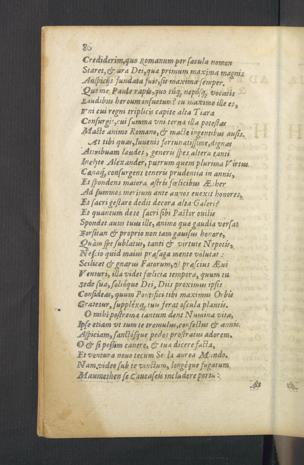 80
Crediderim, quo Romanum per sæcula nomen
Staret, & ara Dei, quæ primum maxima magnis
Auspicijs fundata fuit, sit maxima semper.
Quo me Paule rapis, quo tuis, nepotísq; vocatis
Laudibus heroum insuetum? tu maximus ille es,
Vni cui regni triplicis capite alta Tiara
Consurgit, cui summa vni terræ illa potestas
Macte animo Romane, & macte ingentibus ausis.
At tibi quas, Iuuenis fortunatissime, dignas
Attribuam laudes, generis spes altera tanti
Inclyte Alexander, patruum quem plurima Virtus
Canaq́; consurgens teneris prudentia in annis,
Et spondens matura astris fœlicibus Æther
Ad summos meritum ante annos euexit honores,
Et sacri gestare dedit decora alta Galeri?
Et quantum de te sacri sibi Pastor ouilis
Spondet auus tuus ille, animo qua gaudia versat
Versitan & proprio non tam gauisus honore,
Quàm spe sublatus, tanti & virtute Nepotis,
Nescio quid maius præsaga mente volutat:
Scilicet & gnarus Fatorum, & præscius Æui
Venturi, illa videt fœlicia tempora, quum tu
Sede sua, soliisque Dei, Diis proximus ipse
Considens, quum Pontifici tibi maximus Orbis
Gratetur, supplexq; tuis ferat oscula plantis.
O mihi postrema tantum dent Numina vita,
Ipse etiam vt tum te tremulus, confectus & annis
Aspiciam, sanctosque pedes prostratus adorem.
O & si possim canere, & tua dicere facta,
Et ventura nouo tecum Sæcla aurea Mundo.
Nam, video sub te vinctum, longéque fugatum
Maumethen se Caucaseis includere portis: